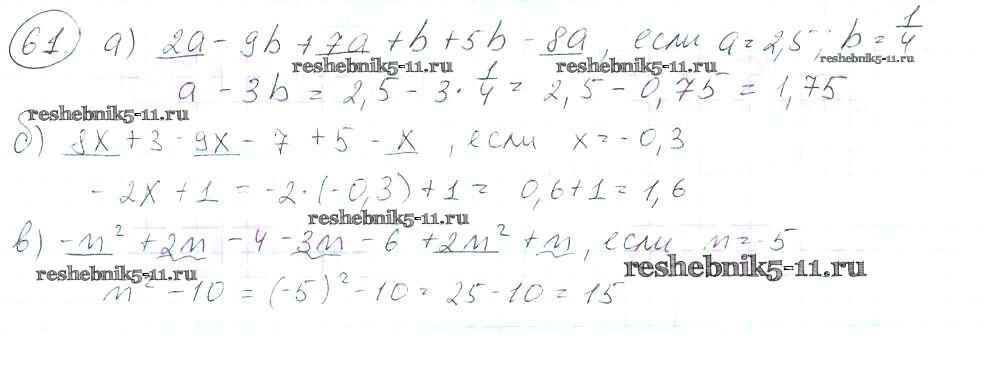 61) а) 2a - 9b + 7a + b + 5b - 8a, если a = 2,5; b = 1/4
reshebnik5-11.ru reshebnik5-11.ru
a - 3b = 2,5 - 3 · 1/4 = 2,5 - 0,75 = 1,75
reshebnik5-11.ru
б) 8x + 3 - 9x - 7 + 5 - x, если x = -0,3
- 2x + 1 = -2 · (-0,3) + 1 = 0,6 + 1 = 1,6
reshebnik5-11.ru
в) -n² + 2n - 4 - 3n - 6 + 2n² + n, если n = -5
reshebnik5-11.ru reshebnik5-11.ru
n² - 10 = (-5)² - 10 = 25 - 10 = 15